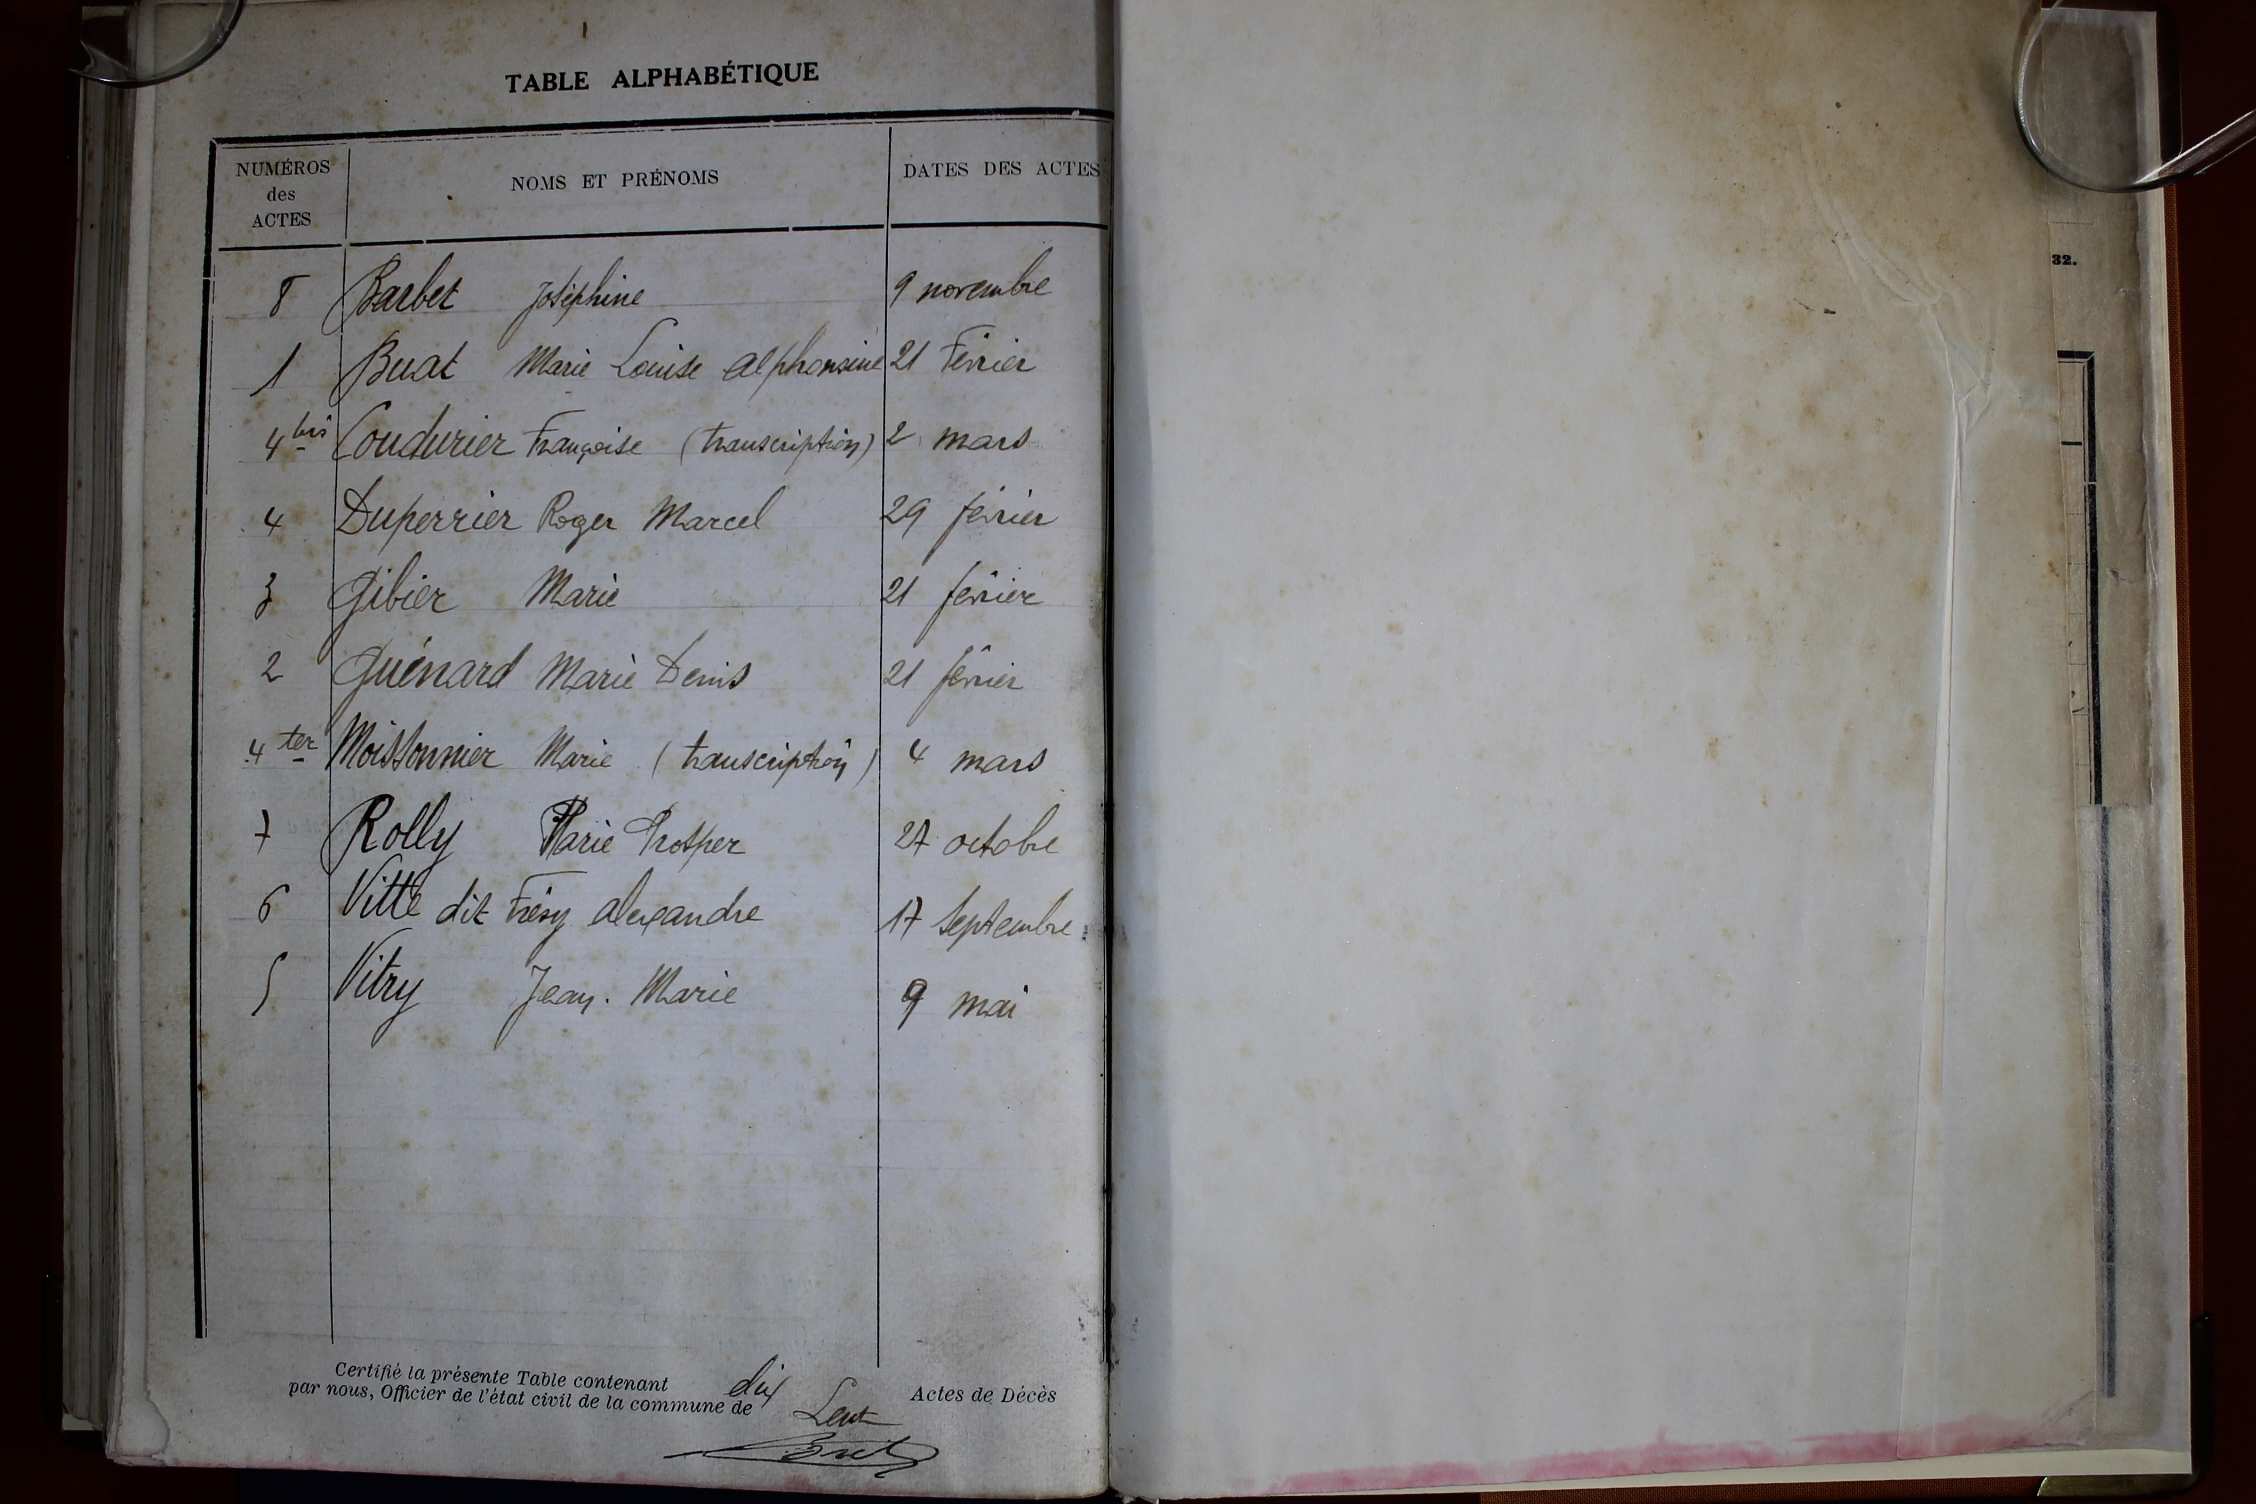 TABLE ALPHABÉTIQUE
NUMÉROS des ACTES NOMS ET PRÉNOMS DATES DES ACTES
8 Barbet Joséphine 9 novembre
1 Buat Marie Louise Alphonsine 21 Février
4 bis Coudurier Françoise (transcription) 2 mars
4 Duperrier Roger Marcel 29 février
3 Gibier Marie 21 février
2 Guénard Marie Denis 21 février
4 ter Moissonnier Marie (transcription) 4 mars
7 Rolly Marie Prosper 27 octobre
6 Vitte dit Frésy alexandre 17 septembre
5 Vitry Jean. Marie 9 mai
Certifié la présente Table contenant dix Actes de Décès
par nous, Officier de l'état civil de la commune de Lent
32.